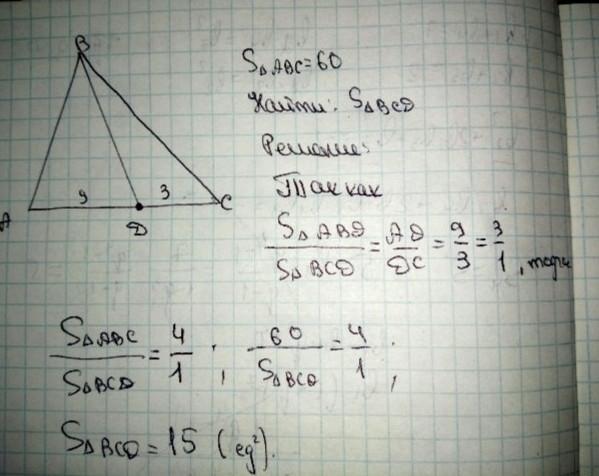 B
S△ABC=60
Найти: S△BCD
Решение:
Так как
9 3
A D C
S△ABD / S△BCD = AD / DC = 9/3 = 3/1, тогда
S△ABC / S△BCD = 4/1 ; 60 / S△BCD = 4/1 ;
S△BCD = 15 (ед²).